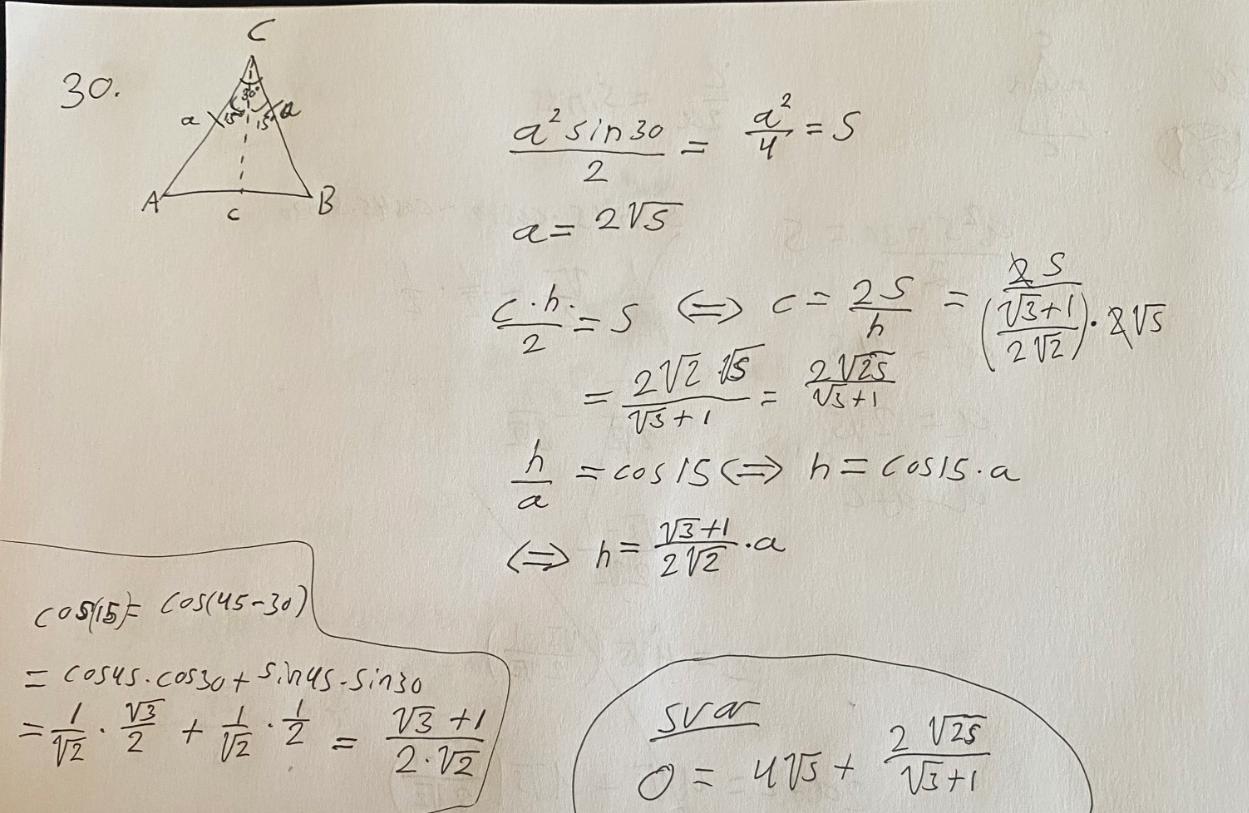 30.
C
30°
a 15° 15° a
A c B
a² sin30 / 2 = a²/4 = S
a = 2√S
c·h / 2 = S ⇔ c = 2S/h = 2S / ((√3+1)/(2√2))·2√S
= 2√2 √S / (√3+1) = 2√2S / (√3+1)
h/a = cos15 ⇔ h = cos15·a
⇔ h = (√3+1)/(2√2) · a
cos(15) = cos(45-30)
= cos45·cos30 + sin45·sin30
= 1/√2 · √3/2 + 1/√2 · 1/2 = (√3+1)/(2·√2)
svar
O = 4√S + 2√2S / (√3+1)